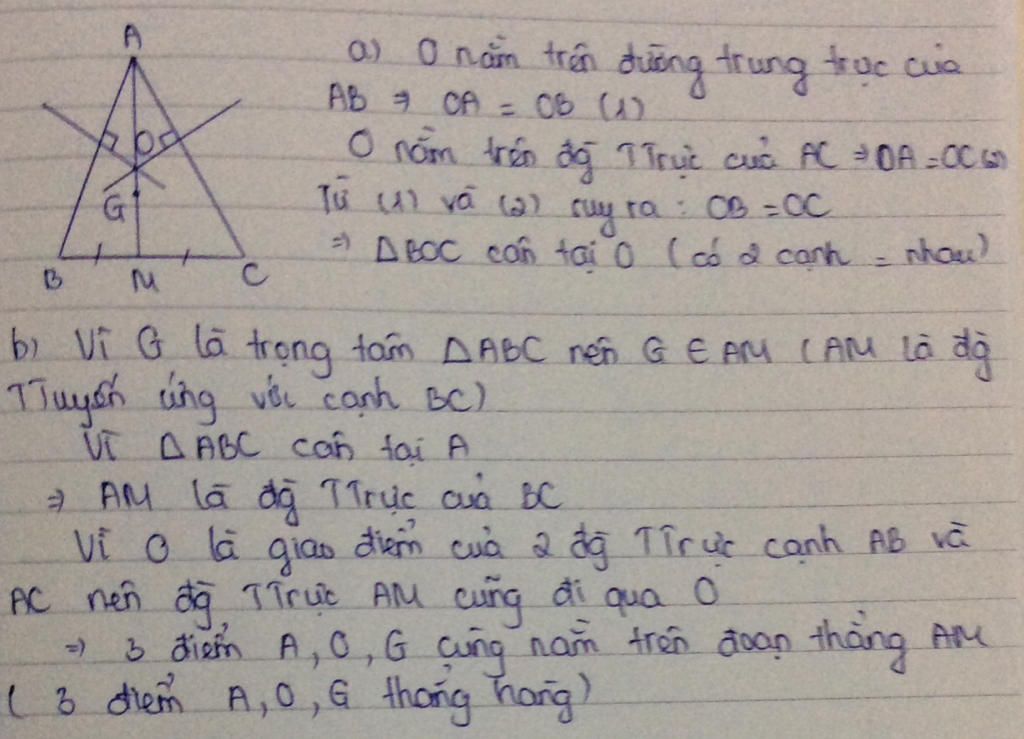 A
O
G
B M C
a) O nằm trên đường trung trực của
AB => OA = OB (1)
O nằm trên đg TTrực của AC => OA = OC (2)
Từ (1) và (2) suy ra : OB = OC
=> ΔBOC cân tại O (có 2 cạnh = nhau)
b) Vì G là trọng tâm ΔABC nên G ∈ AM (AM là đg
TTuyến ứng với cạnh BC)
Vì ΔABC cân tại A
=> AM là đg TTrực của BC
Vì O là giao điểm của 2 đg TTrực cạnh AB và
AC nên đg TTrực AM cũng đi qua O
=> 3 điểm A, O, G cùng nằm trên đoạn thẳng AM
( 3 điểm A, O, G thẳng hàng)